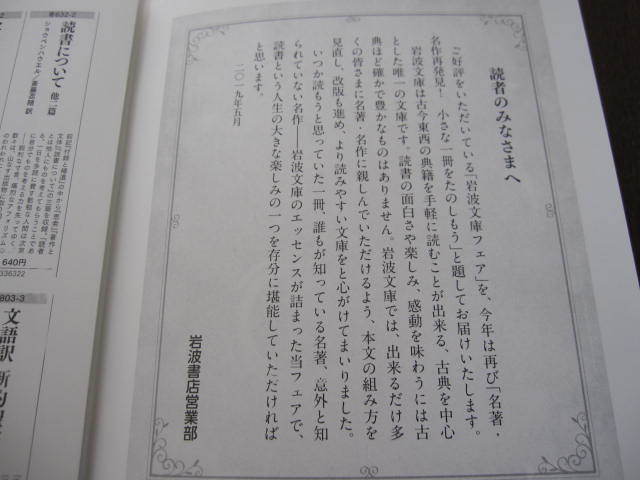 読者のみなさまへ
ご好評をいただいている「岩波文庫フェア」を、今年は再び「名著・
名作再発見！　小さな一冊をたのしもう」と題してお届けいたします。
岩波文庫は古今東西の典籍を手軽に読むことが出来る、古典を中心
とした唯一の文庫です。読書の面白さや楽しみ、感動を味わうには古
典ほど確かで豊かなものはありません。岩波文庫では、出来るだけ多
くの皆さまに名著・名作に親しんでいただけるよう、本文の組み方を
見直し、改版も進め、より読みやすい文庫をと心がけてまいりました。
いつか読もうと思っていた一冊、誰もが知っている名著、意外と知
られていない名作――岩波文庫のエッセンスが詰まった当フェアで、
読書という人生の大きな楽しみの一つを存分に堪能していただければ
と思います。
二〇一九年五月
岩波書店営業部
青632-2
読書について 他二篇
ショウペンハウエル／斎藤忍随 訳
640円
336322
803-3
文語訳